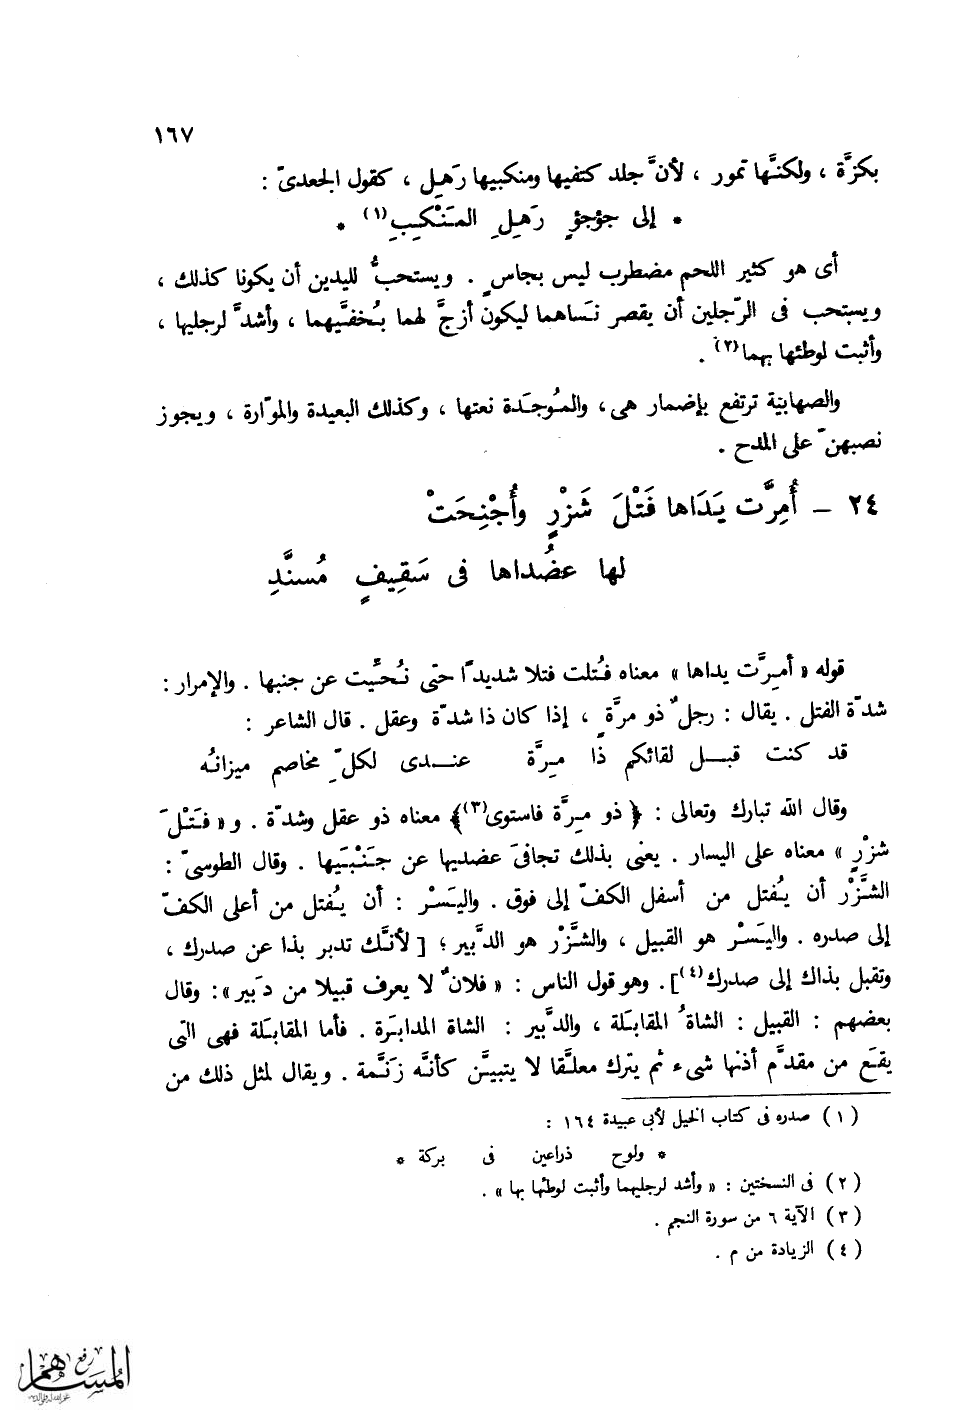 ١٦٧
بكزَّة ، ولكنَّها تمور ، لأنَّ جلد كتفيها ومنكبيها رَهِل ، كقول الجعدىّ :
* إلى جؤجؤٍ رَهِلِ المَنْكِبِ(١) *
أى هو كثير اللحم مضطرب ليس بجاسٍ . ويستحبُّ لليدين أن يكونا كذلك ،
ويستحب فى الرّجلين أن يقصر نَساهما ليكون أزجَّ لهما بخُفَّيهما ، وأشدَّ لرجليها ،
وأثبت لوطئها بهما(٢) .
والصهابية ترتفع بإضمار هى ، والمُوجَدة نعتها ، وكذلك البعيدة والموّارة ، ويجوز
نصبهنّ على المدح .
٢٤ – أُمِرَّت يَدَاها فَتْلَ شَزْرٍ وأُجْنِحَتْ
لها عضُداها فى سَقِيفٍ مُسنَّدِ
قوله « أمِرَّت يداها » معناه فُتلت فتلا شديدًا حتى نُحِّيت عن جنبها . والإمرار :
شدّة الفتل . يقال : رجلٌ ذو مرَّةٍ ، إذا كان ذا شدّة وعقل . قال الشاعر :
قد كنت قبل لقائكم ذا مِرَّة عندى لكلّ مخاصم ميزانُه
وقال الله تبارك وتعالى : ﴿ ذو مِرَّة فاستوى(٣)﴾ معناه ذو عقل وشدّة . و« فَتْلَ
شزْرٍ » معناه على اليسار . يعنى بذلك تجافىَ عضديها عن جَنْبَيها . وقال الطوسىّ :
الشَّزْر أن يُفتل من أسفل الكفّ إلى فوق . واليَسْر : أن يُفتل من أعلى الكفّ
إلى صدره . واليَسْر هو القبيل ، والشَّزْر هو الدَّبير ؛ [ لأنَّك تدبر بذا عن صدرك ،
وتقبل بذاك إلى صدرك(٤)]. وهو قول الناس : « فلانٌ لا يعرف قبيلا من دَبير »: وقال
بعضهم : القبيل : الشاةُ المقابَلة ، والدَّبير : الشاة المدابَرة . فأما المقابَلة فهى التى
يقَع من مقدَّم أذنها شىء ثم يترك معلَّقا لا يتبيَّن كأنَّه زَنَمة . ويقال لمثل ذلك من
( ١ ) صدره فى كتاب الخيل لأبى عبيدة ١٦٤ :
* ولوح ذراعين فى بركة *
( ٢ ) فى النسختين : « وأشد لرجليهما وأثبت لوطئها بها » .
( ٣ ) الآية ٦ من سورة النجم .
( ٤ ) الزيادة من م .
رفع
المساهم